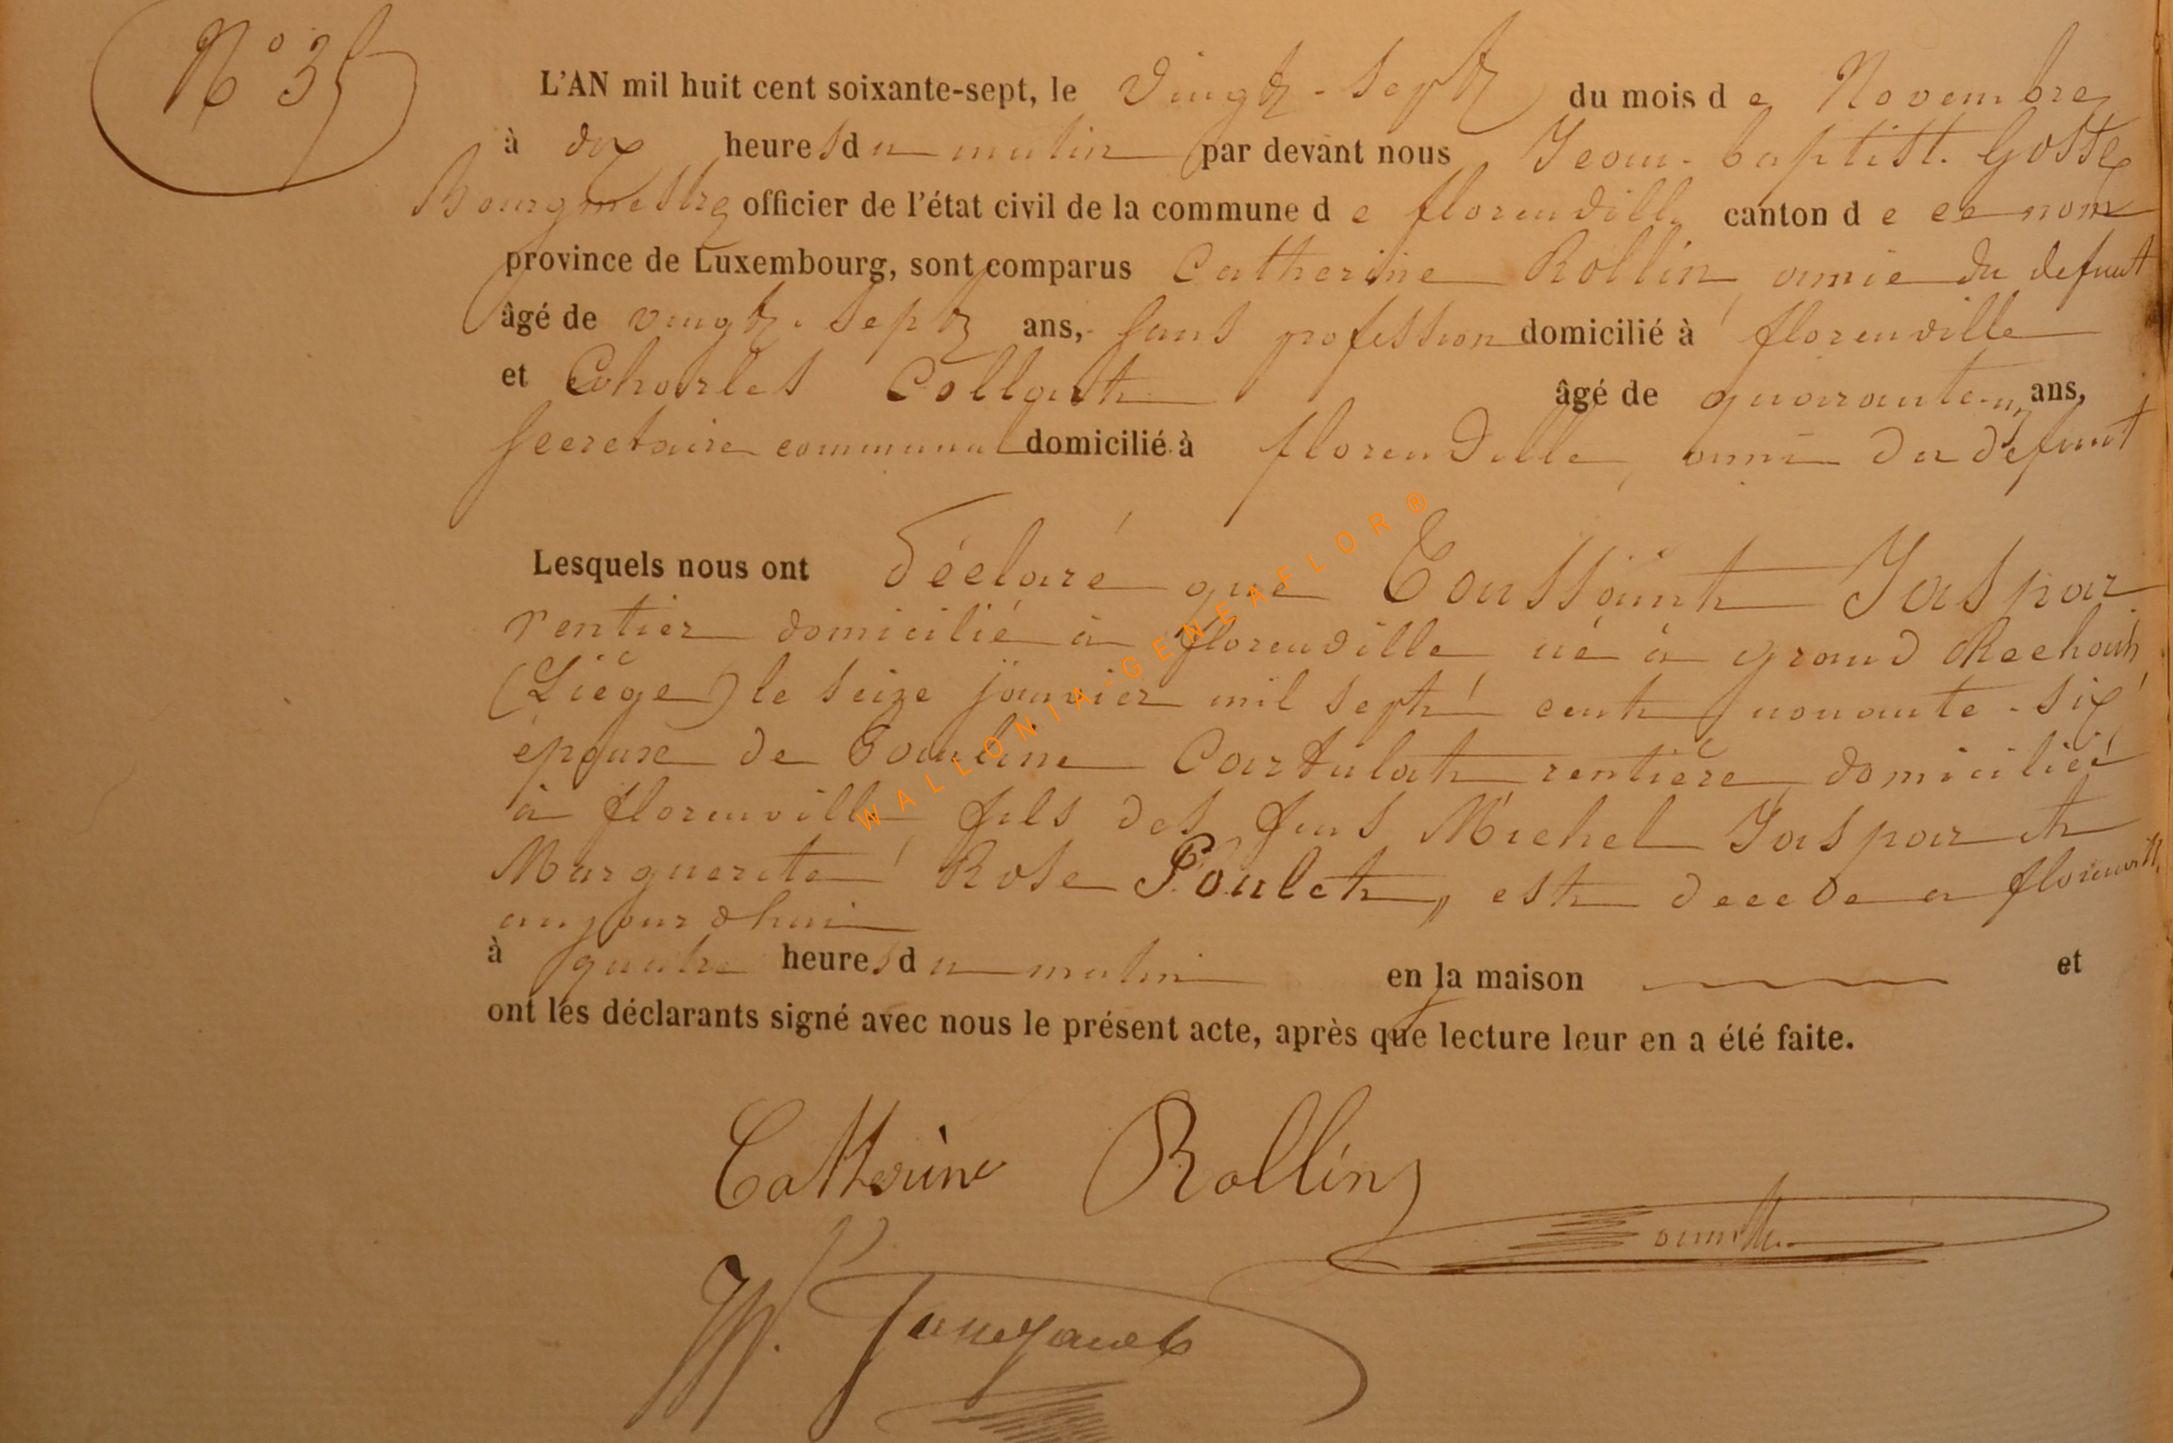 N° 35
L'AN mil huit cent soixante-sept, le vingt-sept du mois de Novembre
à dix heures du matin par devant nous Jean-baptist. Gosse
Bourgmestre officier de l'état civil de la commune de florenville canton de ce nom
province de Luxembourg, sont comparus Catherine Rollin, amie du defunt
âgé de vingt-sept ans, sans profession domicilié à florenville
et Charles Collart âgé de quarante-un ans,
secretaire communal domicilié à florenville, ami du defunt
Lesquels nous ont déclaré que Toussaint Jaspar
rentier domicilié à florenville né à grand Rechain
(Liége) le seize janvier mil sept cent nonante-six
époux de Pauline Cartulat rentière domiciliée
à florenville fils des feus Michel Jaspar et
Marguerite Rose Poulet, est decede a florenville
aujourdhui
à quatre heures du matin en la maison et
ont les déclarants signé avec nous le présent acte, après que lecture leur en a été faite.
Catherine Rollin
WALLONIA-GENEAFLOR®